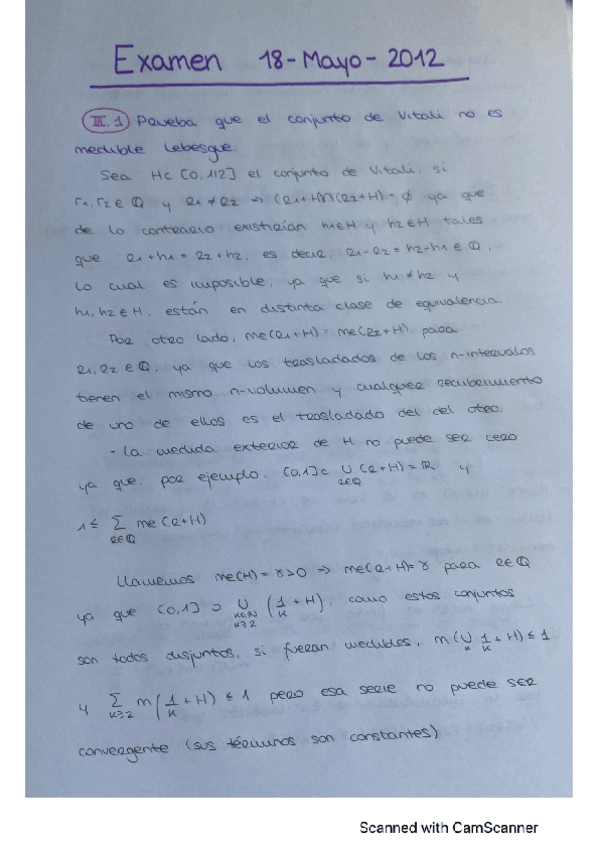 Examen 18-Mayo-2012
III.1) Prueba que el conjunto de Vitali no es
medible Lebesgue.
Sea H⊂[0,1/2] el conjunto de Vitali, si
r1,r2 ∈ Q y r1 ≠ r2 ⇒ (r1+H)∩(r2+H)=∅ ya que
de lo contrario existirían h1∈H y h2∈H tales
que r1+h1 = r2+h2, es decir, r1-r2 = h2-h1 ∈ Q,
lo cual es imposible, ya que si h1≠h2 y
h1,h2∈H, están en distinta clase de equivalencia.
Por otro lado, me(r1+H) = me(r2+H) para
r1,r2 ∈ Q, ya que los trasladados de los n-intervalos
tienen el mismo n-volumen y cualquier recubrimiento
de uno de ellos es el trasladado del del otro.
- La medida exterior de H no puede ser cero
ya que, por ejemplo, [0,1] ⊂ ∪ (r+H) = R y
r∈Q
1 ≤ Σ me(r+H)
r∈Q
Llamemos me(H)=γ>0 ⇒ me(r+H)=γ para r∈Q
ya que [0,1] ⊃ ∪ (1/k + H), como estos conjuntos
k∈N
k≥2
son todos disjuntos, si fueran medibles, m(∪ 1/k + H) ≤ 1
k
y Σ m(1/k + H) ≤ 1 pero esa serie no puede ser
k≥2
convergente (sus términos son constantes)
Scanned with CamScanner